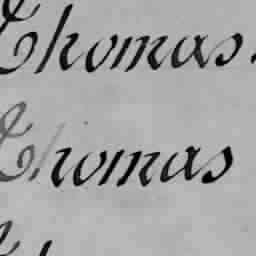 Thomas.
Thomas